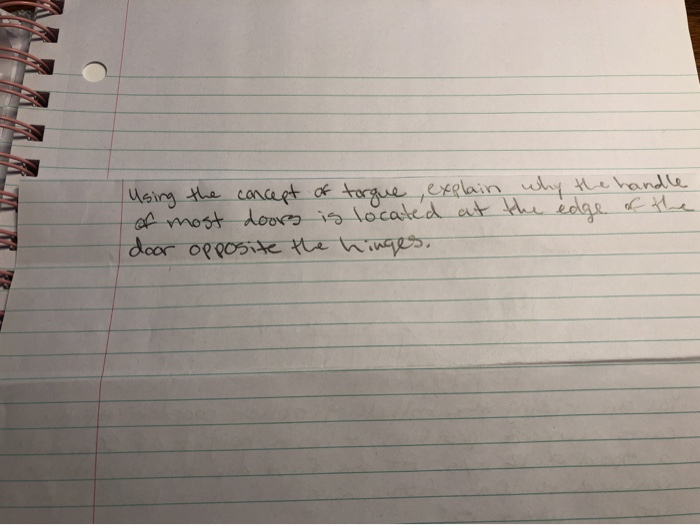 Using the concept of torque, explain why the handle
of most doors is located at the edge of the
door opposite the hinges.